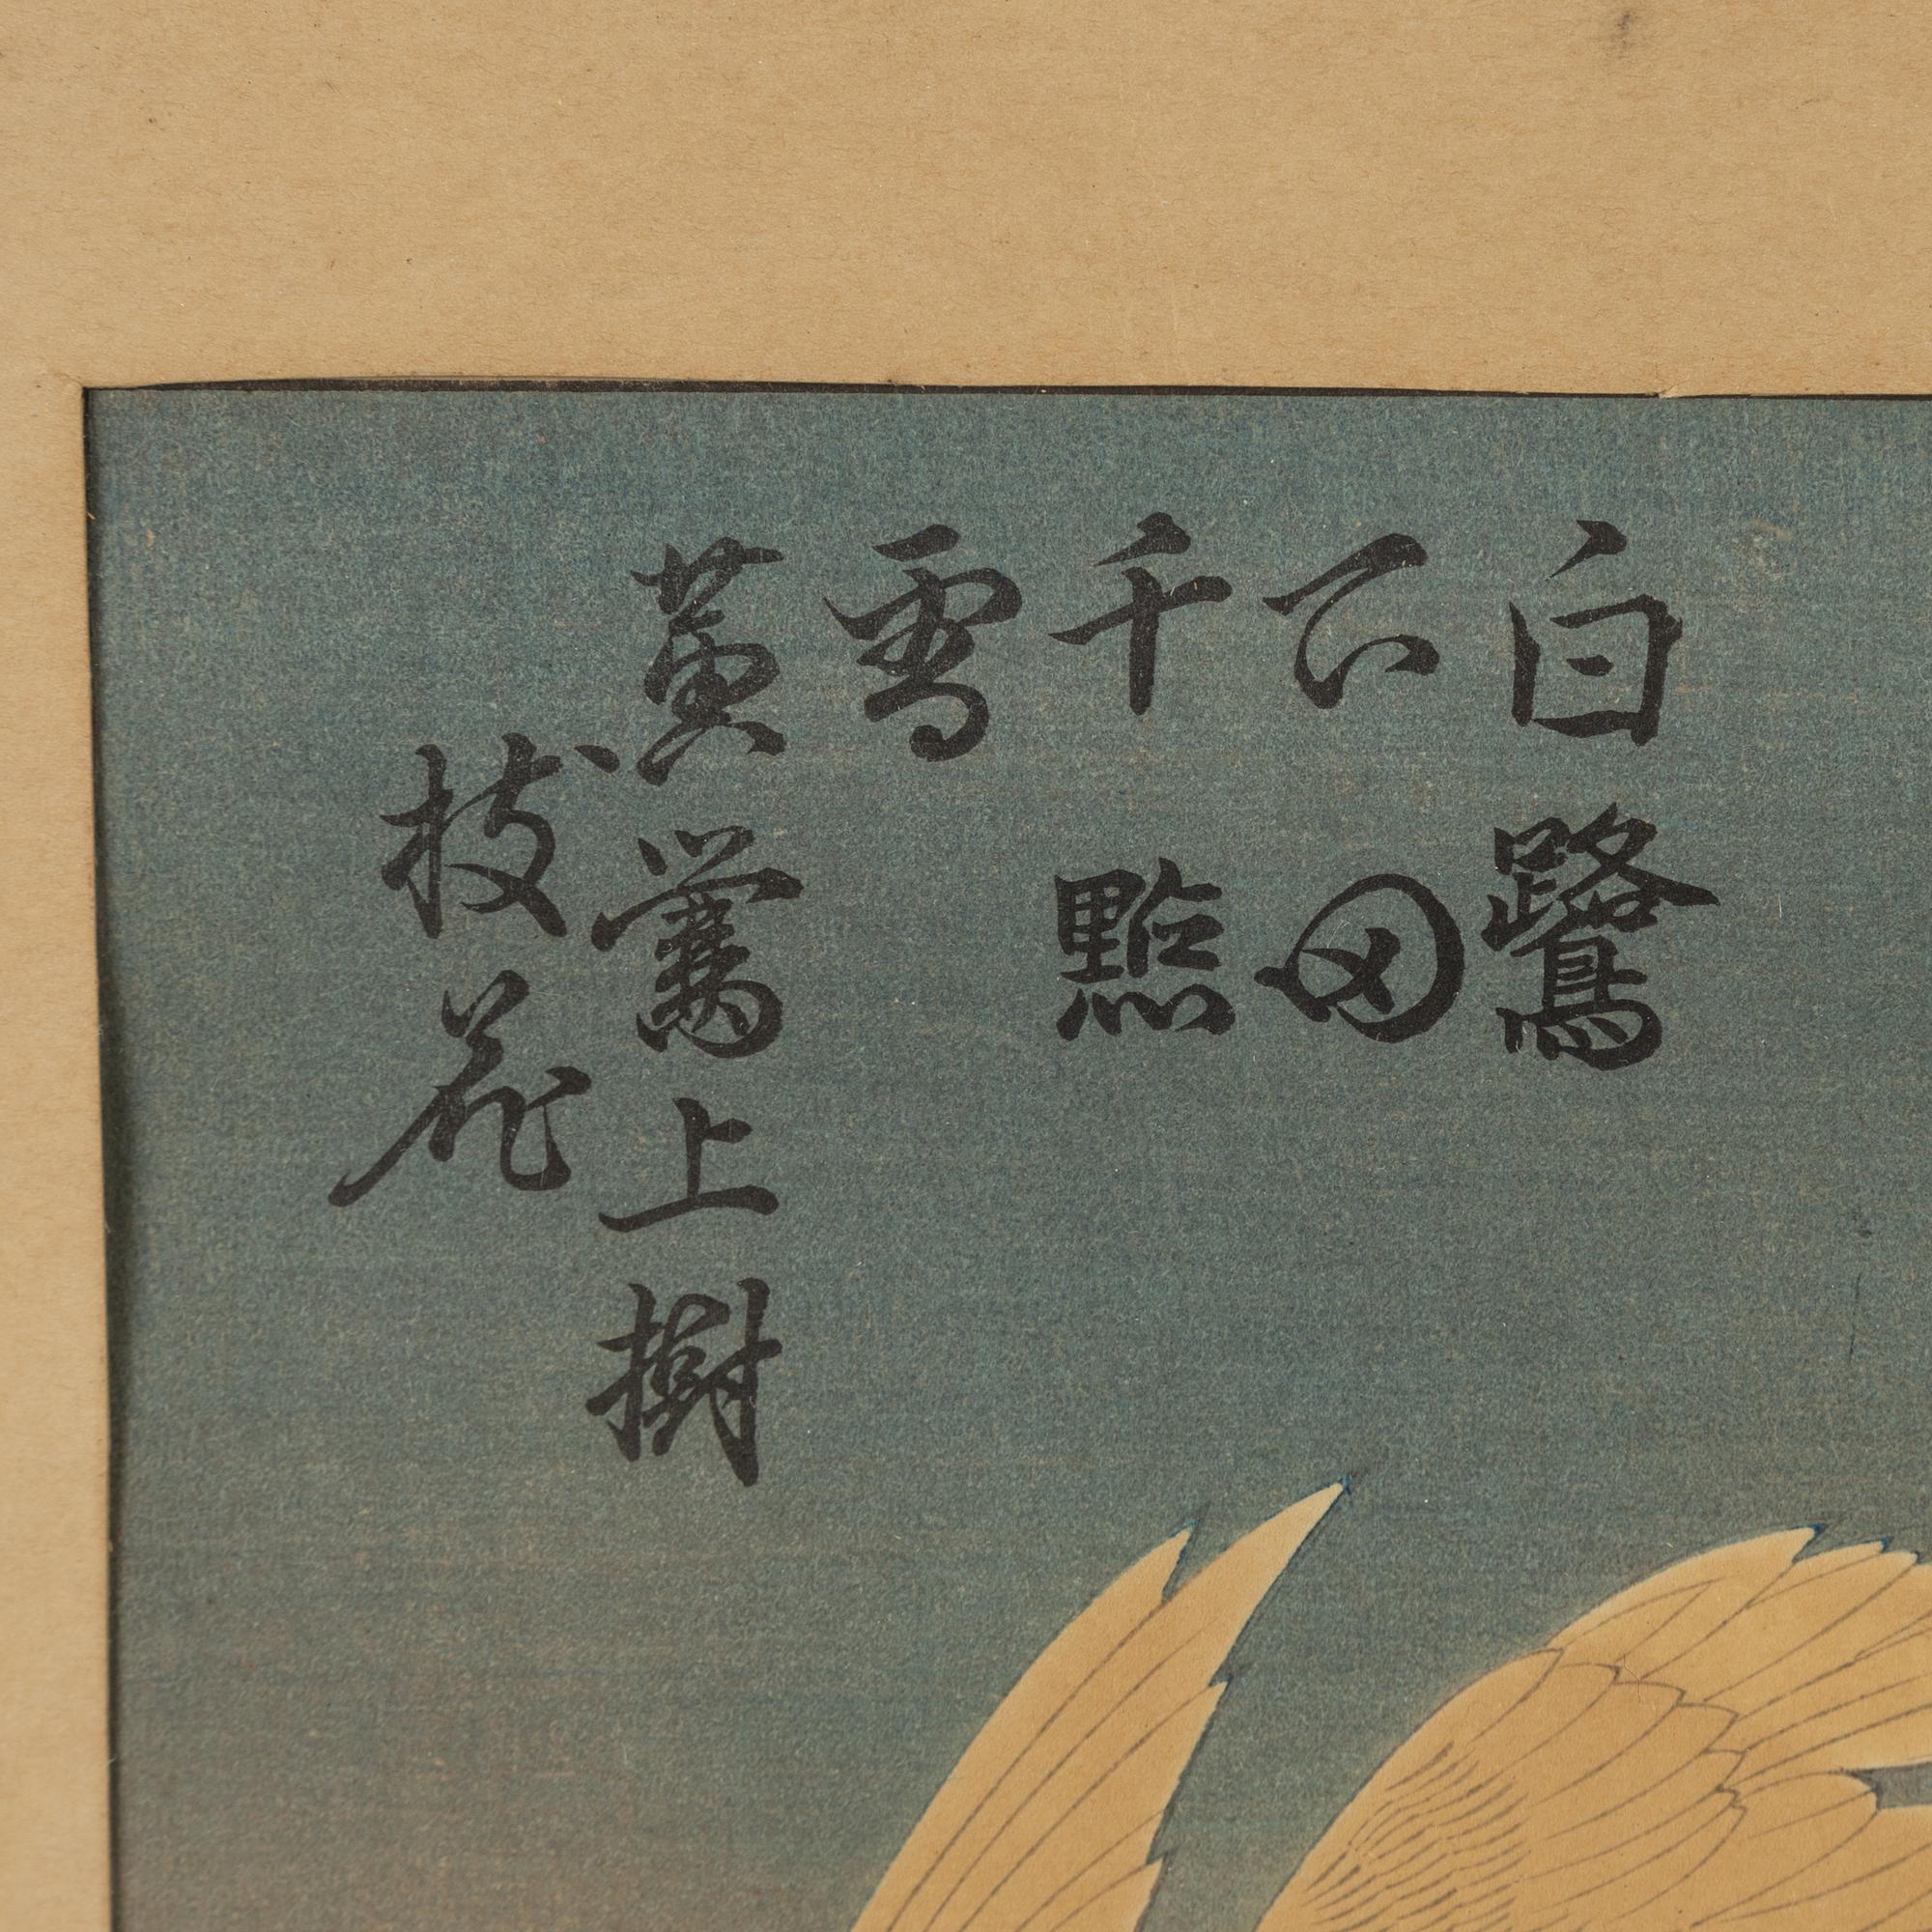 白鷺
下田
千點
雪
黄鶯上樹
枝花